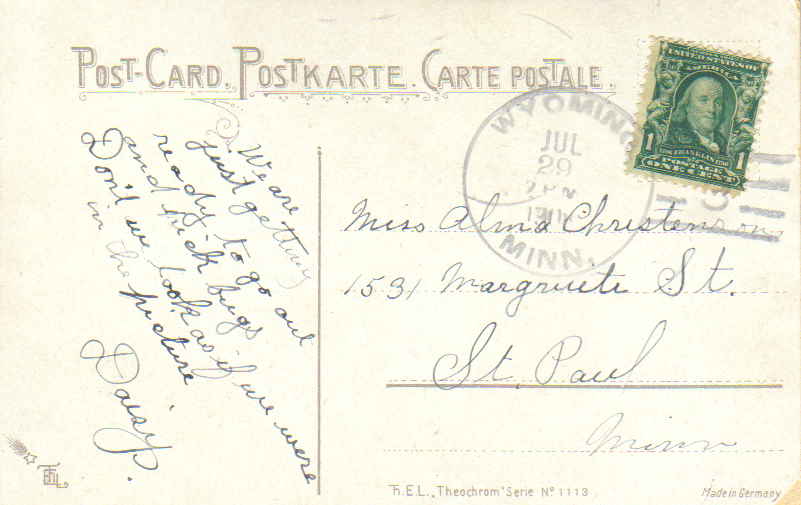 POST-CARD. POSTKARTE. CARTE POSTALE.
UNITED STATES OF
AMERICA
1 FRANKLIN 1
POSTAGE
ONE CENT
WYOMING
JUL
29
MINN.
We are
just getting
ready to go out
and pick bugs
Don't we look as if we were
in the picture
Daisy.
Miss Alma Christenson
1531 Margruete St.
St. Paul
Minn
Th.E.L. „Theochrom" Serie Nº 1113
Made in Germany